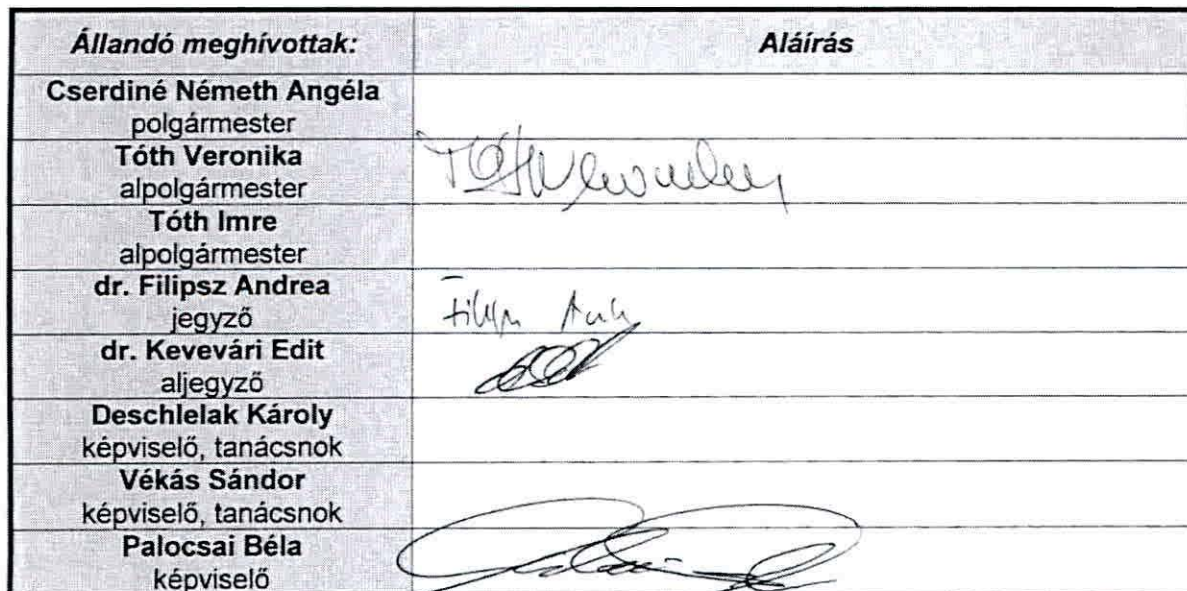 Állandó meghívottak: Aláírás
Cserdiné Németh Angéla
polgármester
Tóth Veronika
alpolgármester
Tóth Imre
alpolgármester
dr. Filipsz Andrea
jegyző
dr. Kevevári Edit
aljegyző
Deschlelak Károly
képviselő, tanácsnok
Vékás Sándor
képviselő, tanácsnok
Palocsai Béla
képviselő